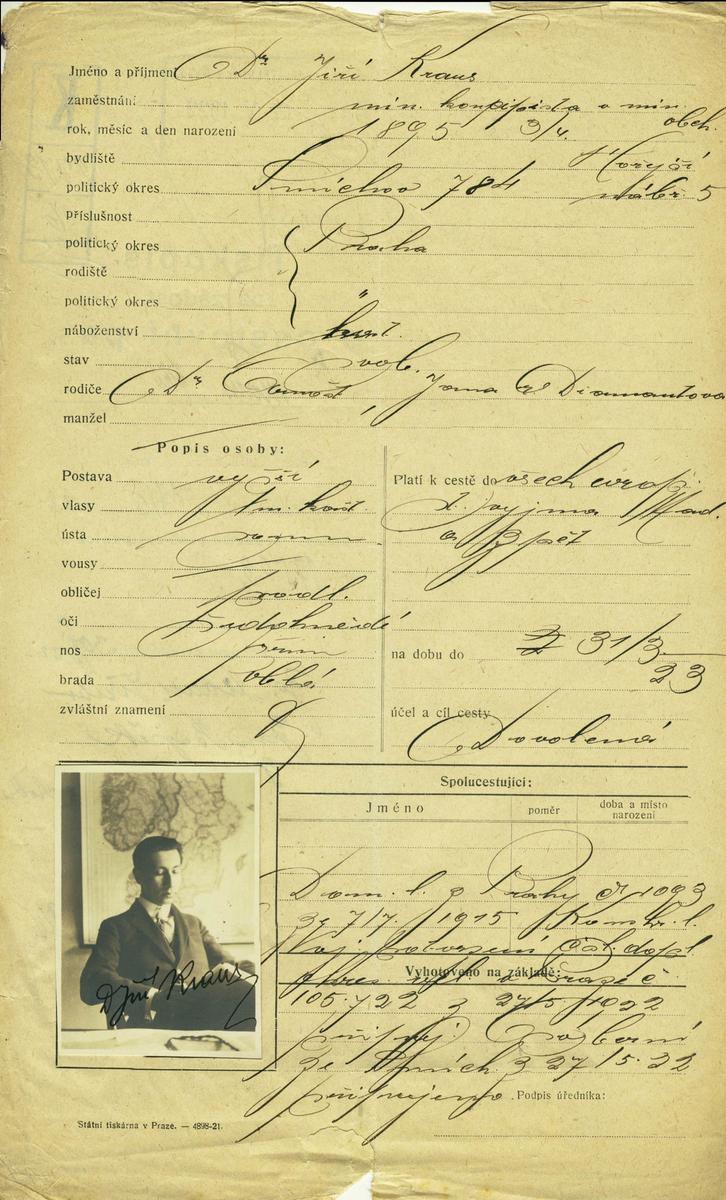 Jméno a příjmení Dr Jiří Kraus
zaměstnání min. koncipista v min. obch.
rok, měsíc a den narození 1895 3/4.
bydliště Hořejší
politický okres Smíchov 784 nábř. 5
příslušnost
politický okres Praha
rodiště
politický okres "
náboženství
stav svob.
rodiče Dr Arnošt, Jana Diamantova
manžel
Popis osoby:
Postava vyšší
vlasy tm. kašt.
ústa
vousy
obličej prodl.
oči šedohnědé
nos
brada oblá
zvláštní znamení
Platí k cestě do všech evrop.
st. vyjma Maď.
a zpět
na dobu do 31/3 23
účel a cíl cesty
Dovolená
Spolucestující:
Jméno poměr doba a místo narození
Dom. l. z Prahy
ze 7/7 1915
Vyhotoveno na základě:
105.722 z 27/5 1922
27/5.22
Podpis úředníka:
Dr Jiří Kraus
Státní tiskárna v Praze. — 4898-21.